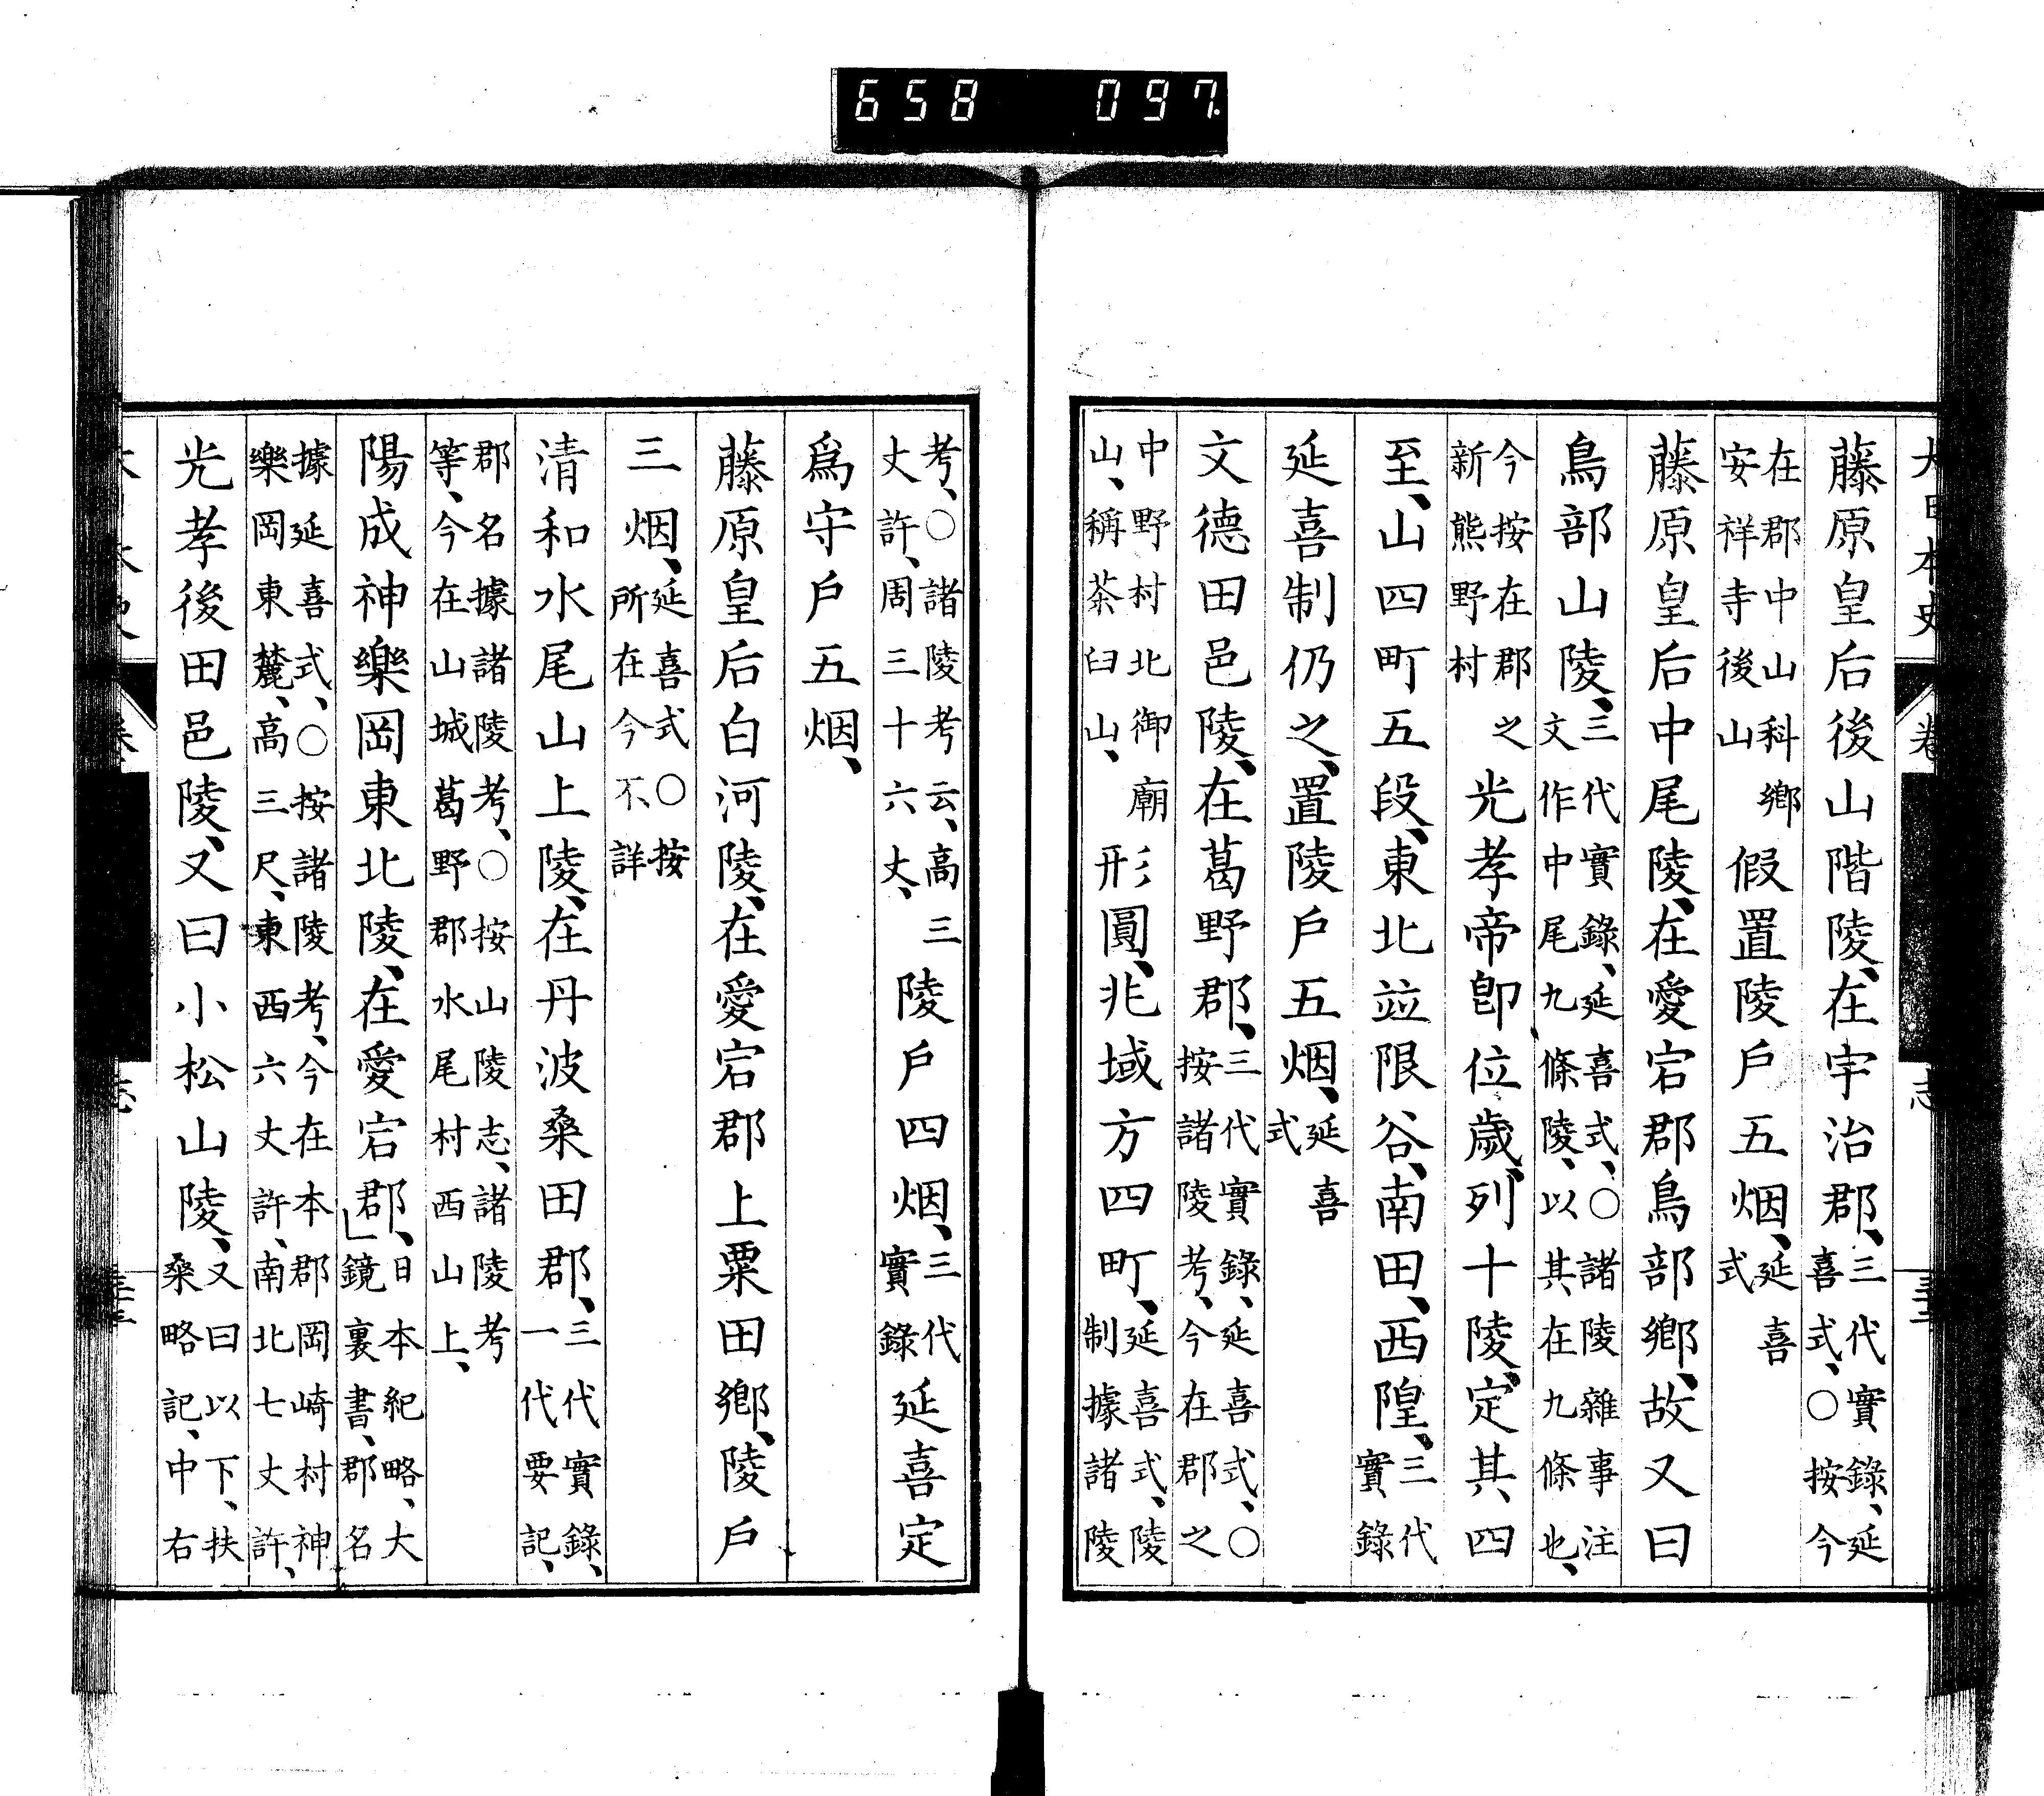 658 097.
大日本史
卷
志
藤原皇后後山階陵、在宇治郡、三代實錄、延喜式、○按今
在郡中山科鄉安祥寺後山假置陵戶五烟、延喜式
藤原皇后中尾陵、在愛宕郡鳥部鄉、故又曰
鳥部山陵、三代實錄、延喜式、○諸陵雜事注文作中尾九條陵、以其在九條也、
今按在郡之新熊野村光孝帝卽位歲、列十陵、定其四
至、山四町五段、東北竝限谷、南田、西隍、三代實錄
延喜制仍之、置陵戶五烟、延喜式
文德田邑陵、在葛野郡、三代實錄、延喜式、○按諸陵考、今在郡之
中野村北御廟山、稱茶臼山、形圓、兆域方四町、延喜式、陵制據諸陵
考、○諸陵考云、高三丈許、周三十六丈、陵戶四烟、三代實錄延喜定
爲守戶五烟、
藤原皇后白河陵、在愛宕郡上粟田鄉、陵戶
三烟、延喜式○按所在今不詳
清和水尾山上陵、在丹波桑田郡、三代實錄、一代要記、
郡名據諸陵考、○按山陵志、諸陵考等、今在山城葛野郡水尾村西山上、
陽成神樂岡東北陵、在愛宕郡、日本紀略、大鏡裏書、郡名
據延喜式、○按諸陵考、今在本郡岡崎村神樂岡東麓、高三尺、東西六丈許、南北七丈許、
光孝後田邑陵、又曰小松山陵、又曰以下、扶桑略記、中右